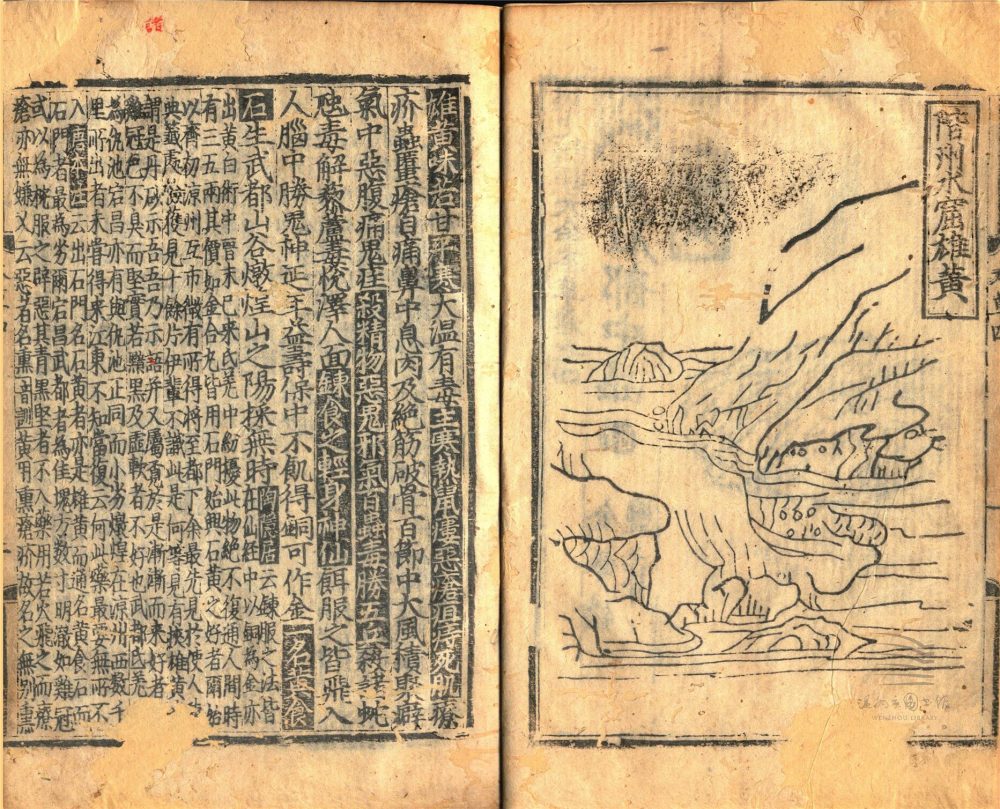 階州水窟雄黃
雄黃味苦甘平寒大温有毒主寒熱鼠瘻惡瘡疽痔死肌療
疥蟲䘌瘡目痛鼻中息肉及絕筋破骨百節中大風積聚癖
氣中惡腹痛鬼疰殺精物惡鬼邪氣百蟲毒勝五兵殺諸蛇
虺毒解藜蘆毒悅澤人面鍊食之輕身神仙餌服之皆飛入
人腦中勝鬼神延年益壽保中不飢得銅可作金一名黃食
石生武都山谷燉煌山之陽採無時
陶隱居云鍊服之法皆
在仙經中以銅為金亦
出黃白術中晉末已來氐羌中紛擾此物絕不復通人間時
有三五兩其價如金合丸皆用石門始興石黃之好者爾始
以齊初涼州互市微有所得將至都下余最先見於使人
典籤處撿獲見十餘片伊輩不識此是何等見有挾雄黃
謂是丹砂示吾吾乃示語并又屬覓於是漸漸而來好者
雞冠色不臭而堅實若黯黑及虛軟者不好也武都氐羌
為仇池宕昌亦有與仇池正同而小劣燉煌在涼州西數千
里所出者未嘗得來江東不知當復云何此藥最要無所不
入唐本注云出石門名石黃者亦是雄黃而通名黃食石而
石門者最為劣爾宕昌武都者為佳塊方數寸明澈如雞冠
或以為枕服之辟惡其青黑堅者不入藥用若火飛之而療
瘡亦無嫌又云惡者名熏黃用熏瘡疥故名之無別熏
WENZHOU LIBRARY